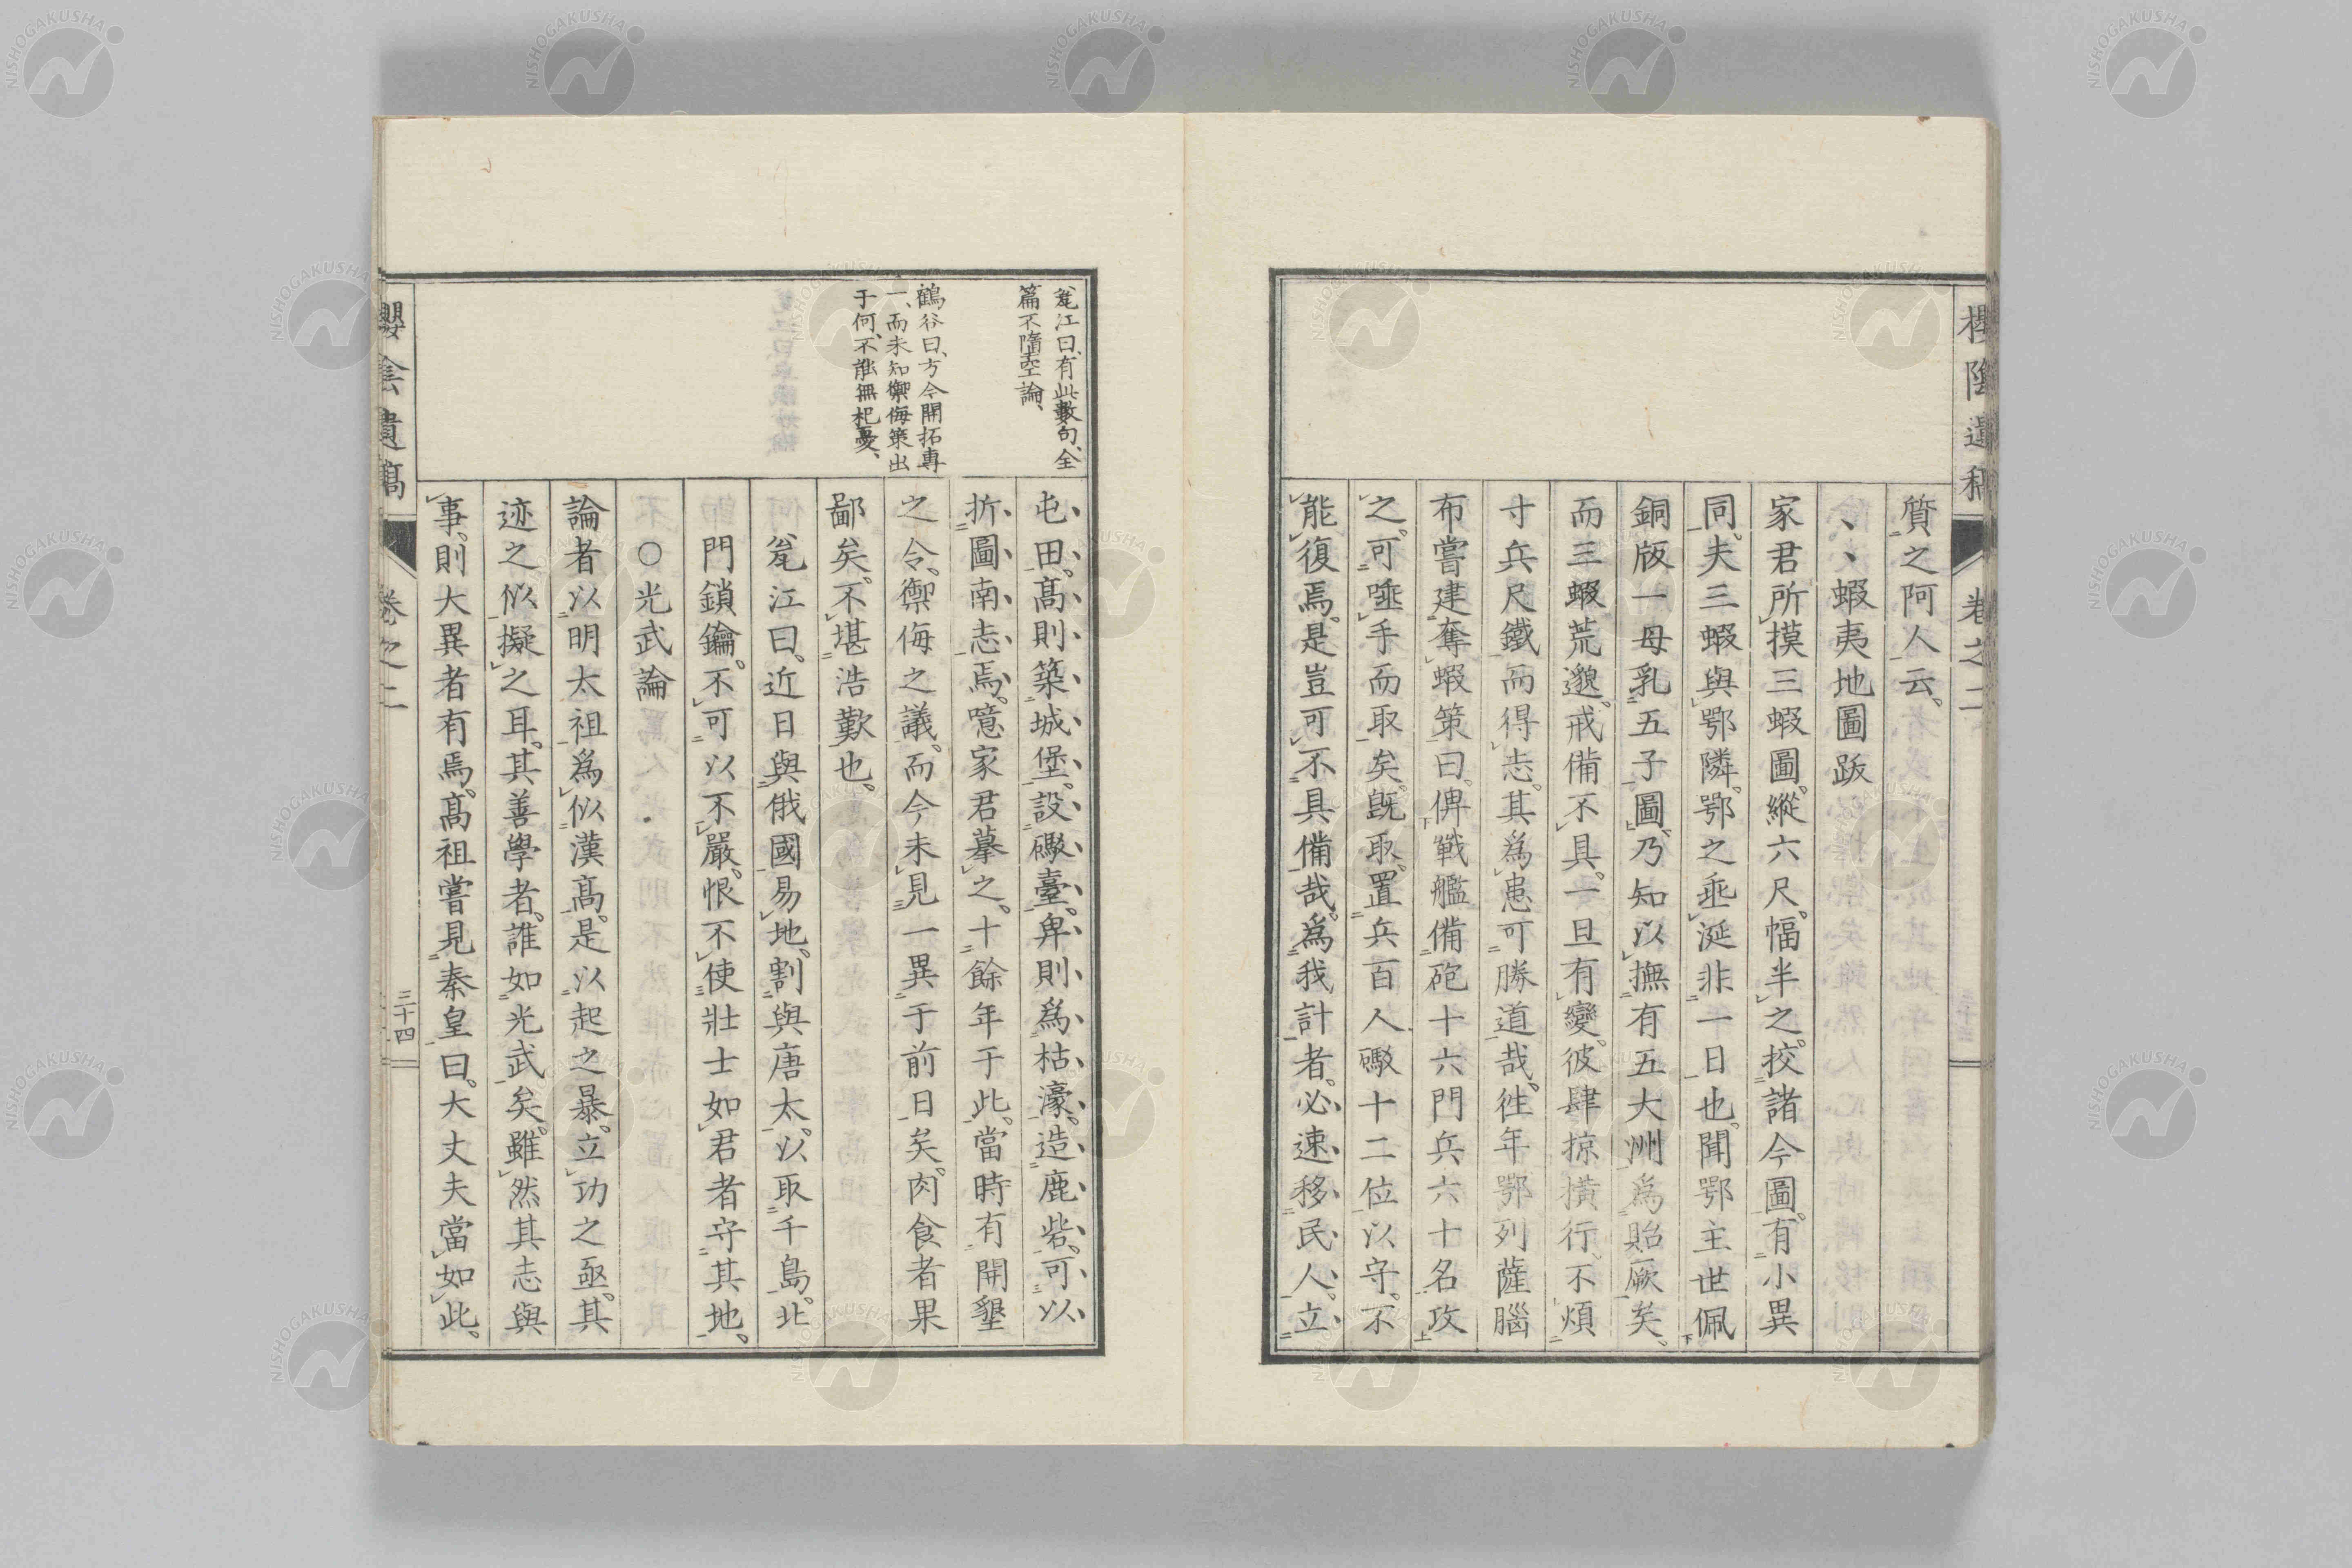 櫻陰遺稿
卷之二
質之阿人云。
、、蝦夷地圖跋
家君所摸三蝦圖。縱六尺。幅半之。挍諸今圖。有小異
同。夫三蝦與鄂隣。鄂之垂涎非一日也。聞鄂主世佩
銅版一母乳五子圖。乃知以撫有五大洲爲貽厥矣。
而三蝦荒邈。戒備不具。一旦有變。彼肆掠橫行。不煩
寸兵尺鐵而得志。其爲患可勝道哉。徃年鄂列薩腦
布嘗建奪蝦策曰。俾戰艦備砲十六門兵六十名攻
之。可唾手而取矣。既取。置兵百人礟十二位以守。不
能復焉。是豈可不具備哉。爲我計者。必速移民人。立
屯田。高則築城堡。設礟臺。卑則爲枯濠。造鹿砦。可以
折圖南志焉。噫家君摹之。十餘年于此。當時有開墾
之令。禦侮之議。而今未見一異于前日矣。肉食者果
鄙矣。不堪浩歎也。
瓮江曰。近日與俄國易地。割與唐太。以取千島。北
門鎖鑰。不可以不嚴。恨不使壯士如君者守其地。
○光武論
論者以明太祖爲似漢高。是以起之暴。立功之亟。其
迹之似擬之耳。其善學者。誰如光武矣。雖然其志與
事。則大異者有焉。高祖嘗見秦皇曰。大丈夫當如此。
瓮江曰、有此數句、全
篇不墮空論、
鶴谷曰、方今開拓專
一、而未知禦侮策出
于何、不能無杞憂、
櫻陰遺稿
卷之二
三十四